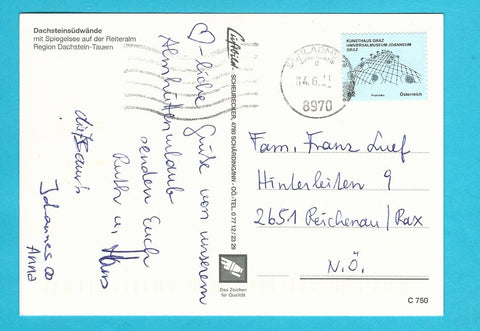 Dachsteinsüdwände
mit Spiegelsee auf der Reiteralm
Region Dachstein-Tauern
♡-liche Grüße von unserem
Almhüttenurlaub
senden Euch
Ruth u. Hans
Johannes
Anna
Luftbild - SCHEURECKER, 4780 SCHÄRDING/INN - OÖ-TEL 0 77 12 / 23 29
8970
KUNSTHAUS GRAZ
UNIVERSALMUSEUM JOANNEUM
GRAZ
62
Österreich
Fam. Franz Luef
Hinterleiten 9
2651 Reichenau/Rax
N.Ö.
Das Zeichen
für Qualität
C 750